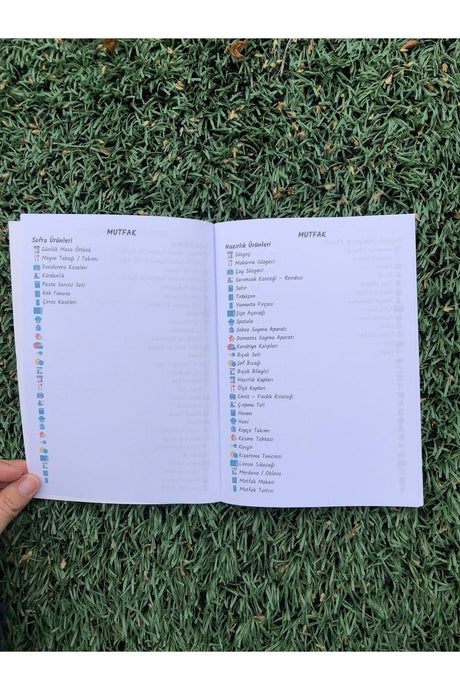 MUTFAK
Sofra Ürünleri
Günlük Masa Örtüsü
Meyve Tabağı / Takımı
Dondurma Kaseleri
Kürdanlık
Pasta Servisi Seti
Kek Fanusu
Çerez Kaseleri
MUTFAK
Hazırlık Ürünleri
Süzgeç
Makarna Süzgeci
Çay Süzgeci
Sarımsak Ezeceği - Rendesi
Satır
Tirbüşon
Yumurta Fırçası
Şişe Açacağı
Spatula
Sebze Soyma Aparatı
Domates Soyma Aparatı
Kurabiye Kalıpları
Bıçak Seti
Şef Bıçağı
Bıçak Bileyici
Hazırlık Kapları
Ölçü Kapları
Ceviz - Fındık Kıracağı
Çırpma Teli
Havan
Huni
Kepçe Takımı
Kesme Tahtası
Kevgir
Kızartma Tenceresi
Limon Sıkacağı
Merdane / Oklava
Mutfak Makası
Mutfak Tartısı